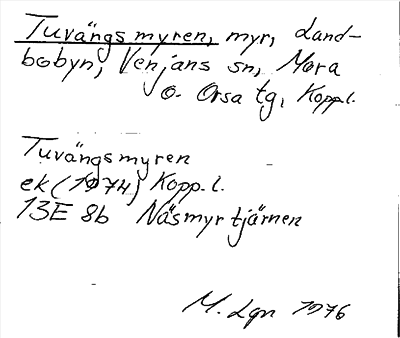 Tuvängsmyren, myr, Land-
bobyn, Venjans sn, Mora
o. Orsa tg, Kopp.l.
Tuvängsmyren
ek (1974) Kopp.l.
13E 8b Näsmyrtjärnen
M. Lgn 1976